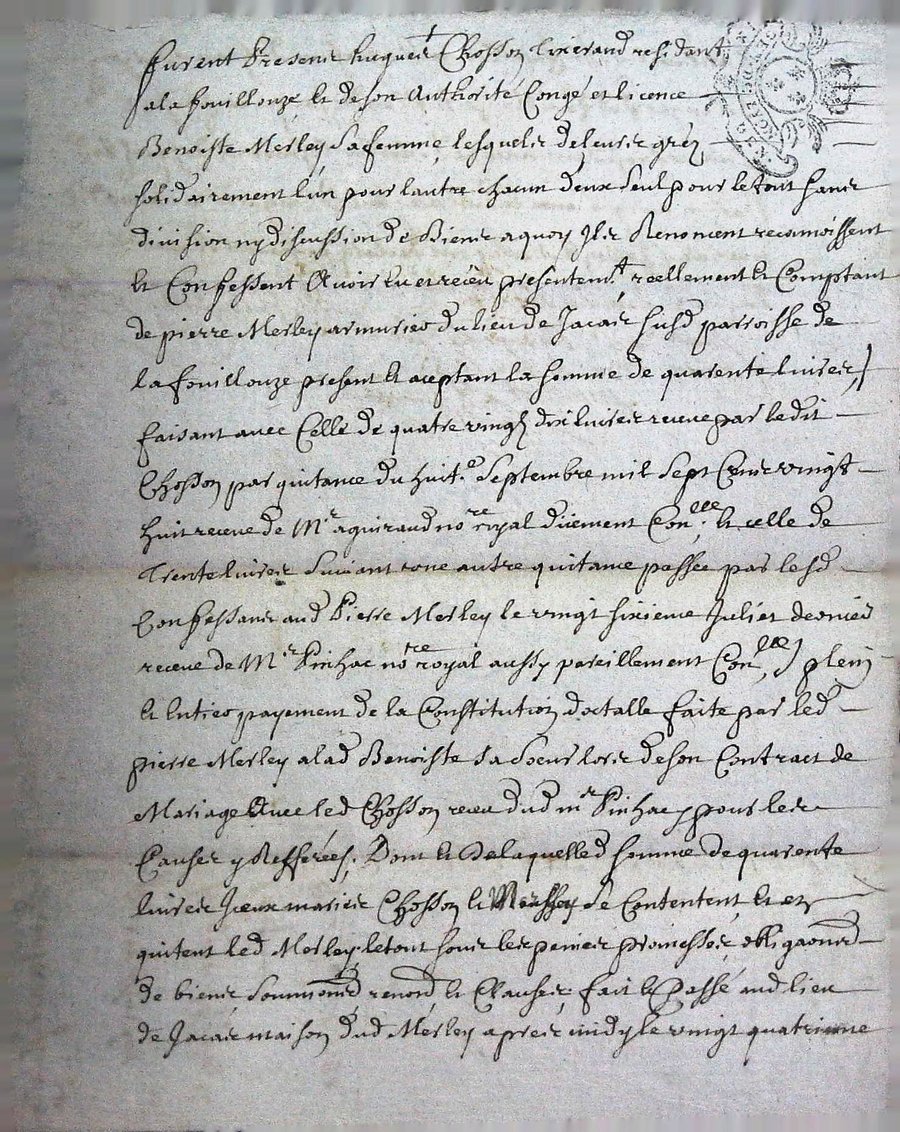 furent Presens hugues Chosson tixerand residant
a la fouillouze et de son Authorité Congé et licence
Benoiste Merley sa femme, lesquels de leurs gréz
solidairement l'un pour lautre chacun deux seul pour le tout sans
division ny discussion de Biens a quoy Ils Renoncent recognoissent
et Confessent Avoir eu et receu presentemt. reellement et Comptant
de pierre Merley armurier du lieu de Jacas susd parroisse de
la fouillouze present et aceptant la somme de quarente livres,
faisant avec Celle de quatre vingt dix livres receue par ledit
Chosson par quitance du huite. Septembre mil sept Cens vingt
huit receue de Mr aguiraud nore royal duement Conllée; et celle de
Trente livres suivant une autre quitance passée par lesd
Confessans aud Pierre Merley le vingt sixieme Juliet dernier
receue de Mr Pinhac nore royal aussy pareillement Conllée) plein
et entier payement de la Constitution doctalle faite par led
pierre Merley a lad Benoiste sa soeur lors de son Contract de
Mariage Avec led Chosson receu dud mr Pinhac, pour les
Causes y Refferées, Dont et de laquelled somme de quarente
livres Iceux mariés Chosson et Merley se Contentent et en
quitent led Merley le tout sous les peines promesses, obligaons
de biens soumions renons et Clauses, fait et Passé aud lieu
de Jacas maison dud Merley apres midy le vingt quatrieme